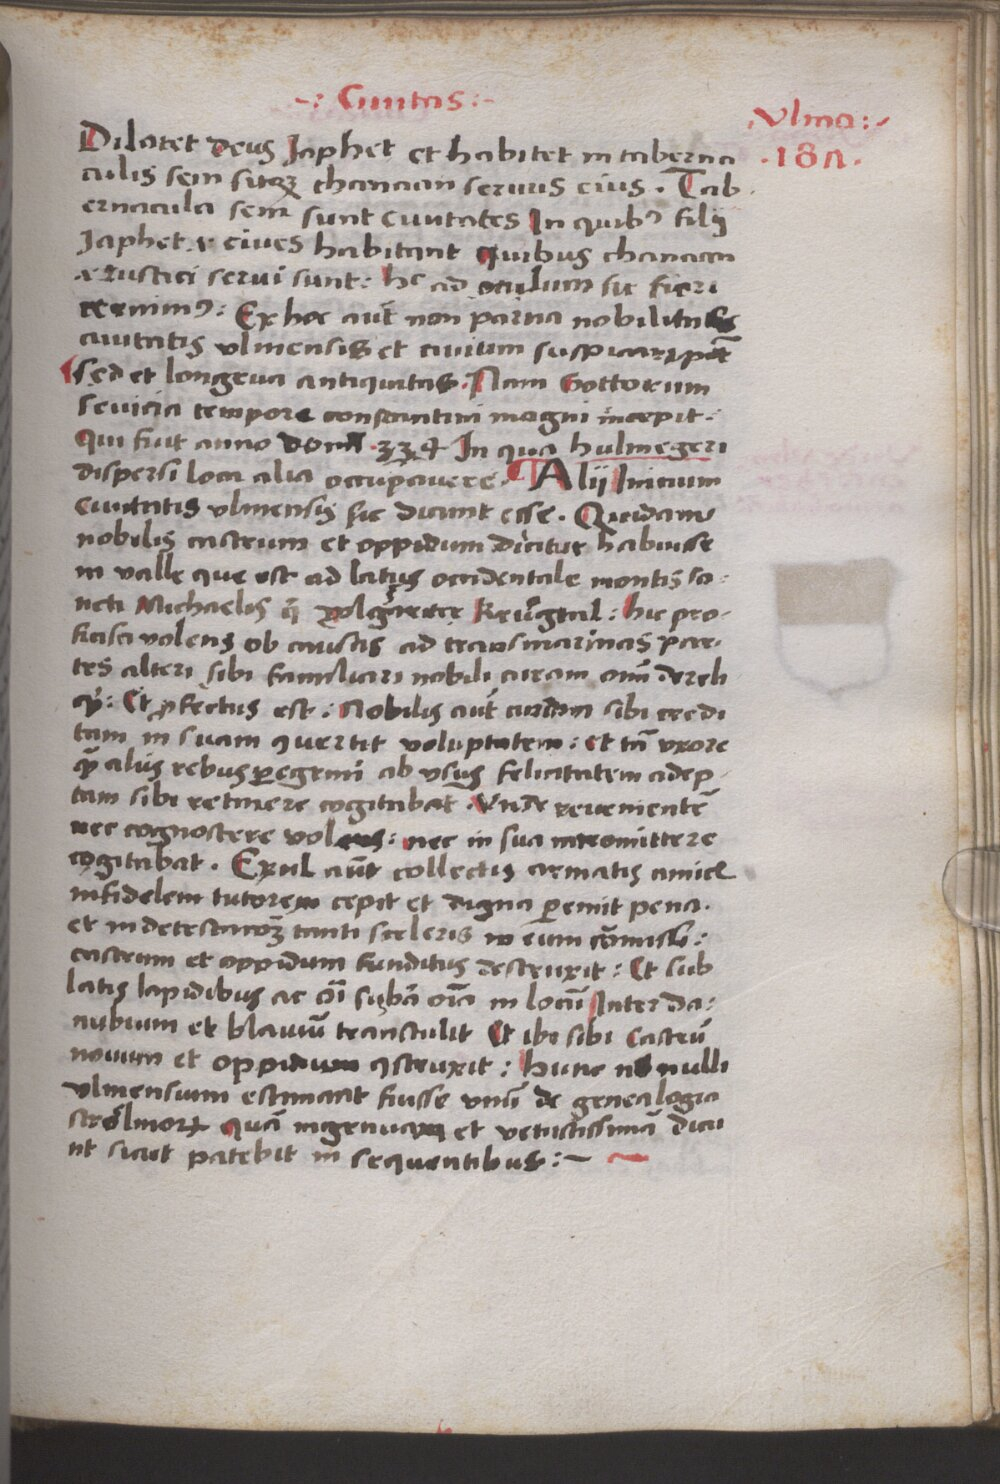 -: Ciuitas :-
Vlma :-
· 187 ·
Dilatet deus Japhet et habitet in taberna
culis sem sitqȝ chanaan seruus eius . Tab
ernacula sem sunt ciuitates In quibꝰ filij
Japhet .i. ciues habitant quibus chanaan
.i. rustici serui sunt : hec ad oculum sic fieri
cernimꝰ : Ex hoc aut̄ non parua nobilitas
ciuitatis vlmensis et ciuium suspicari pōt
sed et longeua antiquitas . Nam Gottorum
seuicia tempore constantini magni incepit :
Qui fuit anno domī · 334 In qua hulmegeri
dispersi loca alia occupauere . Alij Inicium
Ciuitatis vlmensis sic dicunt esse . Quidam
nobilis castrum et oppidum dicitur habuisse
in valle que est ad latus occidentale montis sa-
ncti Michaelis q̄ vulgariter : hic pro-
ficisci volens ob causas ad transmarinas par-
tes alteri sibi familiari nobili curam om̄ dereli
q̄t : Et ꝓfectus est : Nobilis aut̄ curam sibi credi
tam in suam ꝯuertit voluptatem : et tā vxore
q̄ȝ alijs rebus peregrini ab vsus felicitatem adep-
tam sibi retinere cogitabat . Vnde reuenientē
nec cognoscere volens : nec in sua intromittere
cogitabat . Exul aut̄ collectis armatis amicis
infidelem tutorem cepit et digna peremit pena .
et in detestacōȝ tanti sceleris in eum cōmissi :
castrum et oppidum funditus destruxit : Et sub
latis lapidibus ac cū subā oīa in locū Inter da-
nubium et blauiū transtulit Et ibi sibi Castrū
nouum et oppidum ꝯstruxit : hunc nonulli
vlmensium estimant fuisse vnū de genealogia
strölinorꝝ quā ingenuam et vetustissimā dicu
nt sicut patebit in sequentibus :~